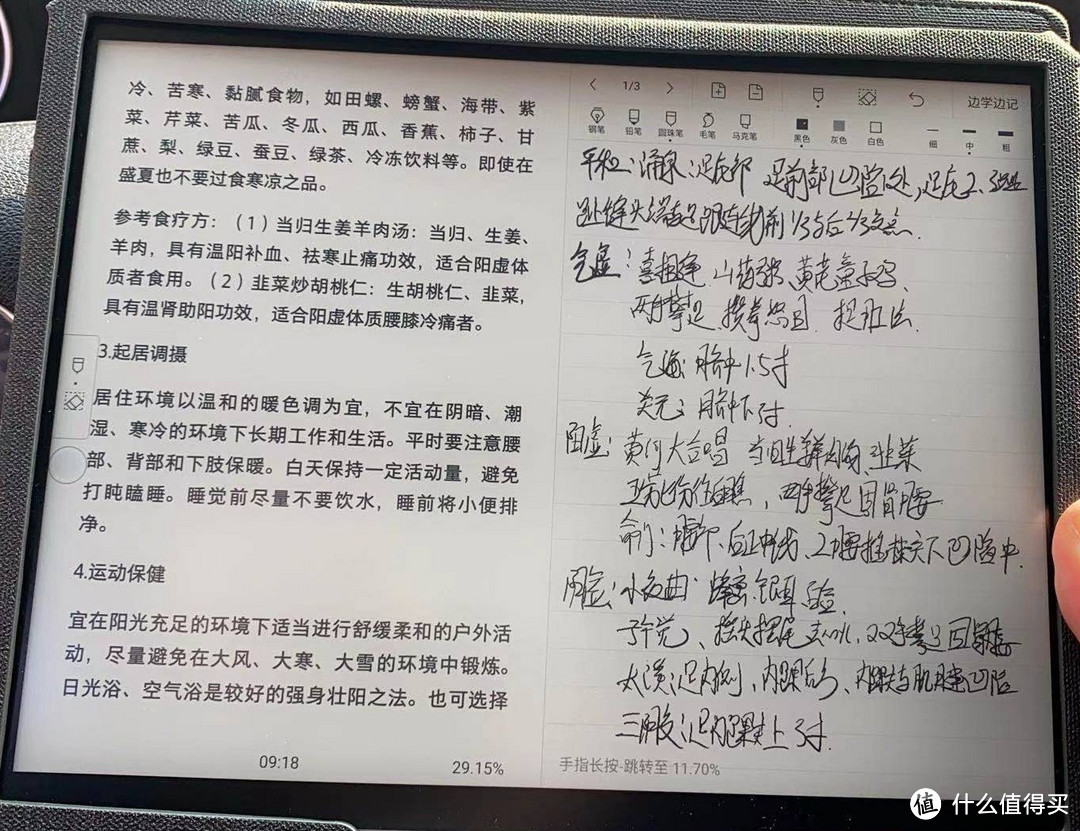 冷、苦寒、黏腻食物，如田螺、螃蟹、海带、紫
菜、芹菜、苦瓜、冬瓜、西瓜、香蕉、柿子、甘
蔗、梨、绿豆、蚕豆、绿茶、冷冻饮料等。即使在
盛夏也不要过食寒凉之品。
参考食疗方：（1）当归生姜羊肉汤：当归、生姜、
羊肉，具有温阳补血、祛寒止痛功效，适合阳虚体
质者食用。（2）韭菜炒胡桃仁：生胡桃仁、韭菜，
具有温肾助阳功效，适合阳虚体质腰膝冷痛者。
3.起居调摄
居住环境以温和的暖色调为宜，不宜在阴暗、潮
湿、寒冷的环境下长期工作和生活。平时要注意腰
部、背部和下肢保暖。白天保持一定活动量，避免
打盹瞌睡。睡觉前尽量不要饮水，睡前将小便排
净。
4.运动保健
宜在阳光充足的环境下适当进行舒缓柔和的户外活
动，尽量避免在大风、大寒、大雪的环境中锻炼。
日光浴、空气浴是较好的强身壮阳之法。也可选择
09:18
29.15%
1/3
边学边记
钢笔 铅笔 圆珠笔 毛笔 马克笔 黑色 灰色 白色 细 中 粗
涌泉：足底部 足前部凹陷处，足底2、3
趾缝头端与足跟连线前1/3与后2/3交点.
气虚：喜相逢 山药粥 黄芪童子鸡
两手攀足 攒拳怒目
气海：脐中1.5寸
关元：脐下3寸.
阳虚：黄河大合唱 当归生姜羊肉汤 韭菜
两手攀足固肾腰
命门：腰部、后正中线、2腰椎棘突下凹陷中.
阴虚：小夜曲 蜂蜜银耳
摇头摆尾去心火，两手攀足固肾腰
太溪：足内侧，内踝后方、内踝尖与肌腱凹陷
三阴交：足内踝尖上3寸.
手指长按-跳转至 11.70%
值 什么值得买